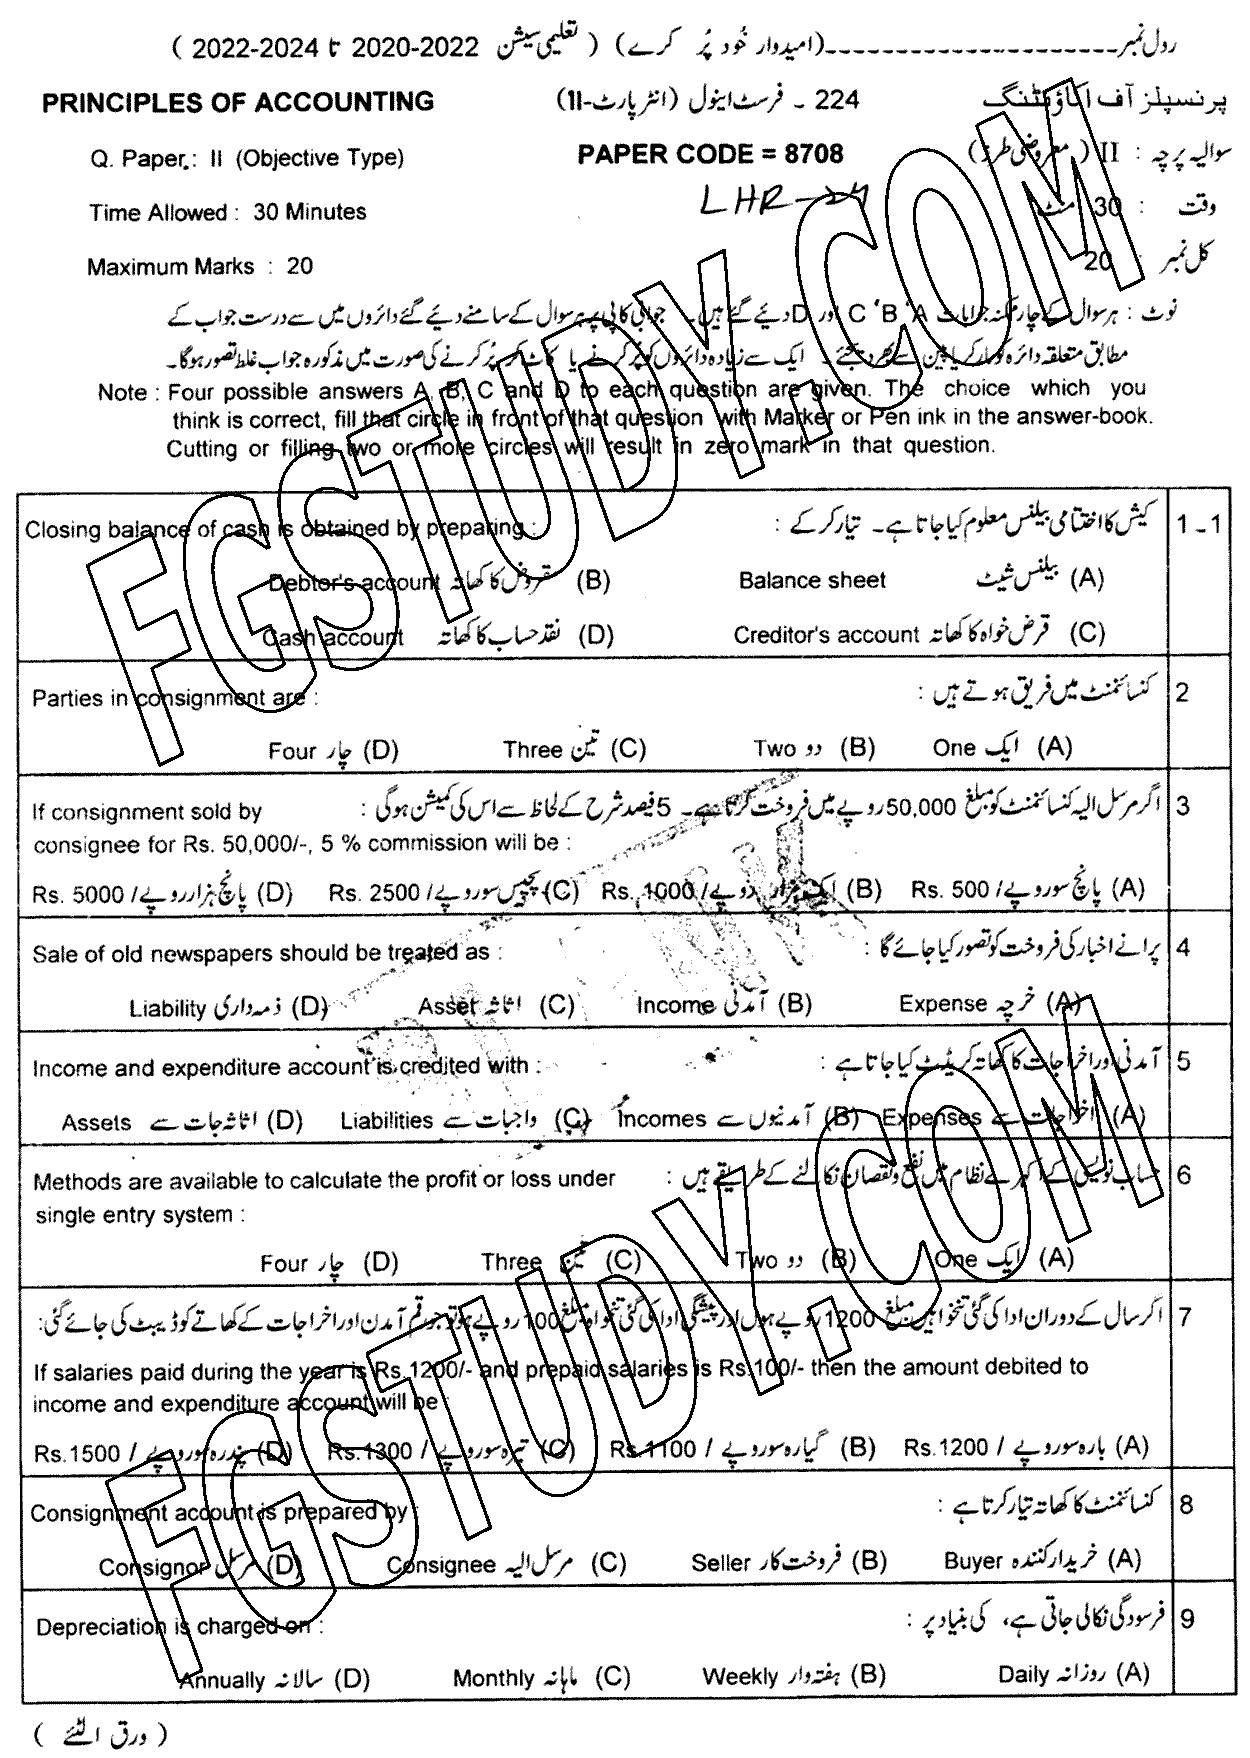 رول نمبر ـــــــــــــــ (امیدوار خُود پُر کرے) ( تعلیمی سیشن 2022-2020 تا 2024-2022 )
PRINCIPLES OF ACCOUNTING 224 ۔ فرسٹ اینول (انٹر پارٹ-II) پرنسپلز آف اکاؤنٹنگ
Q. Paper : II (Objective Type) PAPER CODE = 8708 سوالیہ پرچہ : II ( معروضی طرز)
LHR-24
Time Allowed : 30 Minutes وقت : 30 منٹ
Maximum Marks : 20 کل نمبر : 20
نوٹ : ہر سوال کے چار ممکنہ جوابات A ‘B ‘C اور D دیئے گئے ہیں۔ جوابی کاپی پر ہر سوال کے سامنے دیئے گئے دائروں میں سے درست جواب کے
مطابق متعلقہ دائرہ کو مارکر یا پین سے بھر دیجئے۔ ایک سے زیادہ دائروں کو پُر کرنے یا کاٹ کر پُر کرنے کی صورت میں مذکورہ جواب غلط تصور ہو گا۔
Note : Four possible answers A, B, C and D to each question are given. The choice which you
think is correct, fill that circle in front of that question with Marker or Pen ink in the answer-book.
Cutting or filling two or more circles will result in zero mark in that question.
1-1 کیش کا اختتامی بیلنس معلوم کیا جاتا ہے۔ تیار کر کے : Closing balance of cash is obtained by preparing :
(A) بیلنس شیٹ Balance sheet (B) مقروض کا کھاتہ Debtor's account
(C) قرض خواہ کا کھاتہ Creditor's account (D) نقد حساب کا کھاتہ Cash account
2 کنسائنمنٹ میں فریق ہوتے ہیں : Parties in consignment are :
(A) ایک One (B) دو Two (C) تین Three (D) چار Four
3 اگر مرسل الیہ کنسائنمنٹ کو مبلغ 50,000 روپے میں فروخت کرتا ہے۔ 5 فیصد شرح کے لحاظ سے اس کی کمیشن ہو گی : If consignment sold by
consignee for Rs. 50,000/-, 5 % commission will be :
(A) پانچ سو روپے / Rs. 500 (B) ایک ہزار روپے / Rs. 1000 (C) پچیس سو روپے / Rs. 2500 (D) پانچ ہزار روپے / Rs. 5000
4 پرانے اخبار کی فروخت کو تصور کیا جائے گا : Sale of old newspapers should be treated as :
(A) خرچہ Expense (B) آمدنی Income (C) اثاثہ Asset (D) ذمہ داری Liability
5 آمدنی اور اخراجات کا کھاتہ کریڈٹ کیا جاتا ہے : Income and expenditure account is credited with :
(A) اخراجات سے Expenses (B) آمدنیوں سے Incomes (C) واجبات سے Liabilities (D) اثاثہ جات سے Assets
6 حساب نویسی کے اکہرے نظام میں نفع و نقصان نکالنے کے طریقے ہیں : Methods are available to calculate the profit or loss under
single entry system :
(A) ایک One (B) دو Two (C) تین Three (D) چار Four
7 اگر سال کے دوران ادا کی گئی تنخواہیں مبلغ 1200 روپے ہوں اور پیشگی ادا کی گئی تنخواہ مبلغ 100 روپے ہو تو جو رقم آمدن اور اخراجات کے کھاتے کو ڈیبٹ کی جائے گی:
If salaries paid during the year is Rs.1200/- and prepaid salaries is Rs.100/- then the amount debited to
income and expenditure account will be :
(A) بارہ سو روپے / Rs.1200 (B) گیارہ سو روپے / Rs.1100 (C) تیرہ سو روپے / Rs.1300 (D) پندرہ سو روپے / Rs.1500
8 کنسائنمنٹ کا کھاتہ تیار کرتا ہے : Consignment account is prepared by :
(A) خریدار کنندہ Buyer (B) فروخت کار Seller (C) مرسل الیہ Consignee (D) مرسل Consignor
9 فرسودگی نکالی جاتی ہے، کی بنیاد پر : Depreciation is charged on :
(A) روزانہ Daily (B) ہفتہ وار Weekly (C) ماہانہ Monthly (D) سالانہ Annually
( ورق الٹیے )
FGSTUDY.COM
FGSTUDY.COM